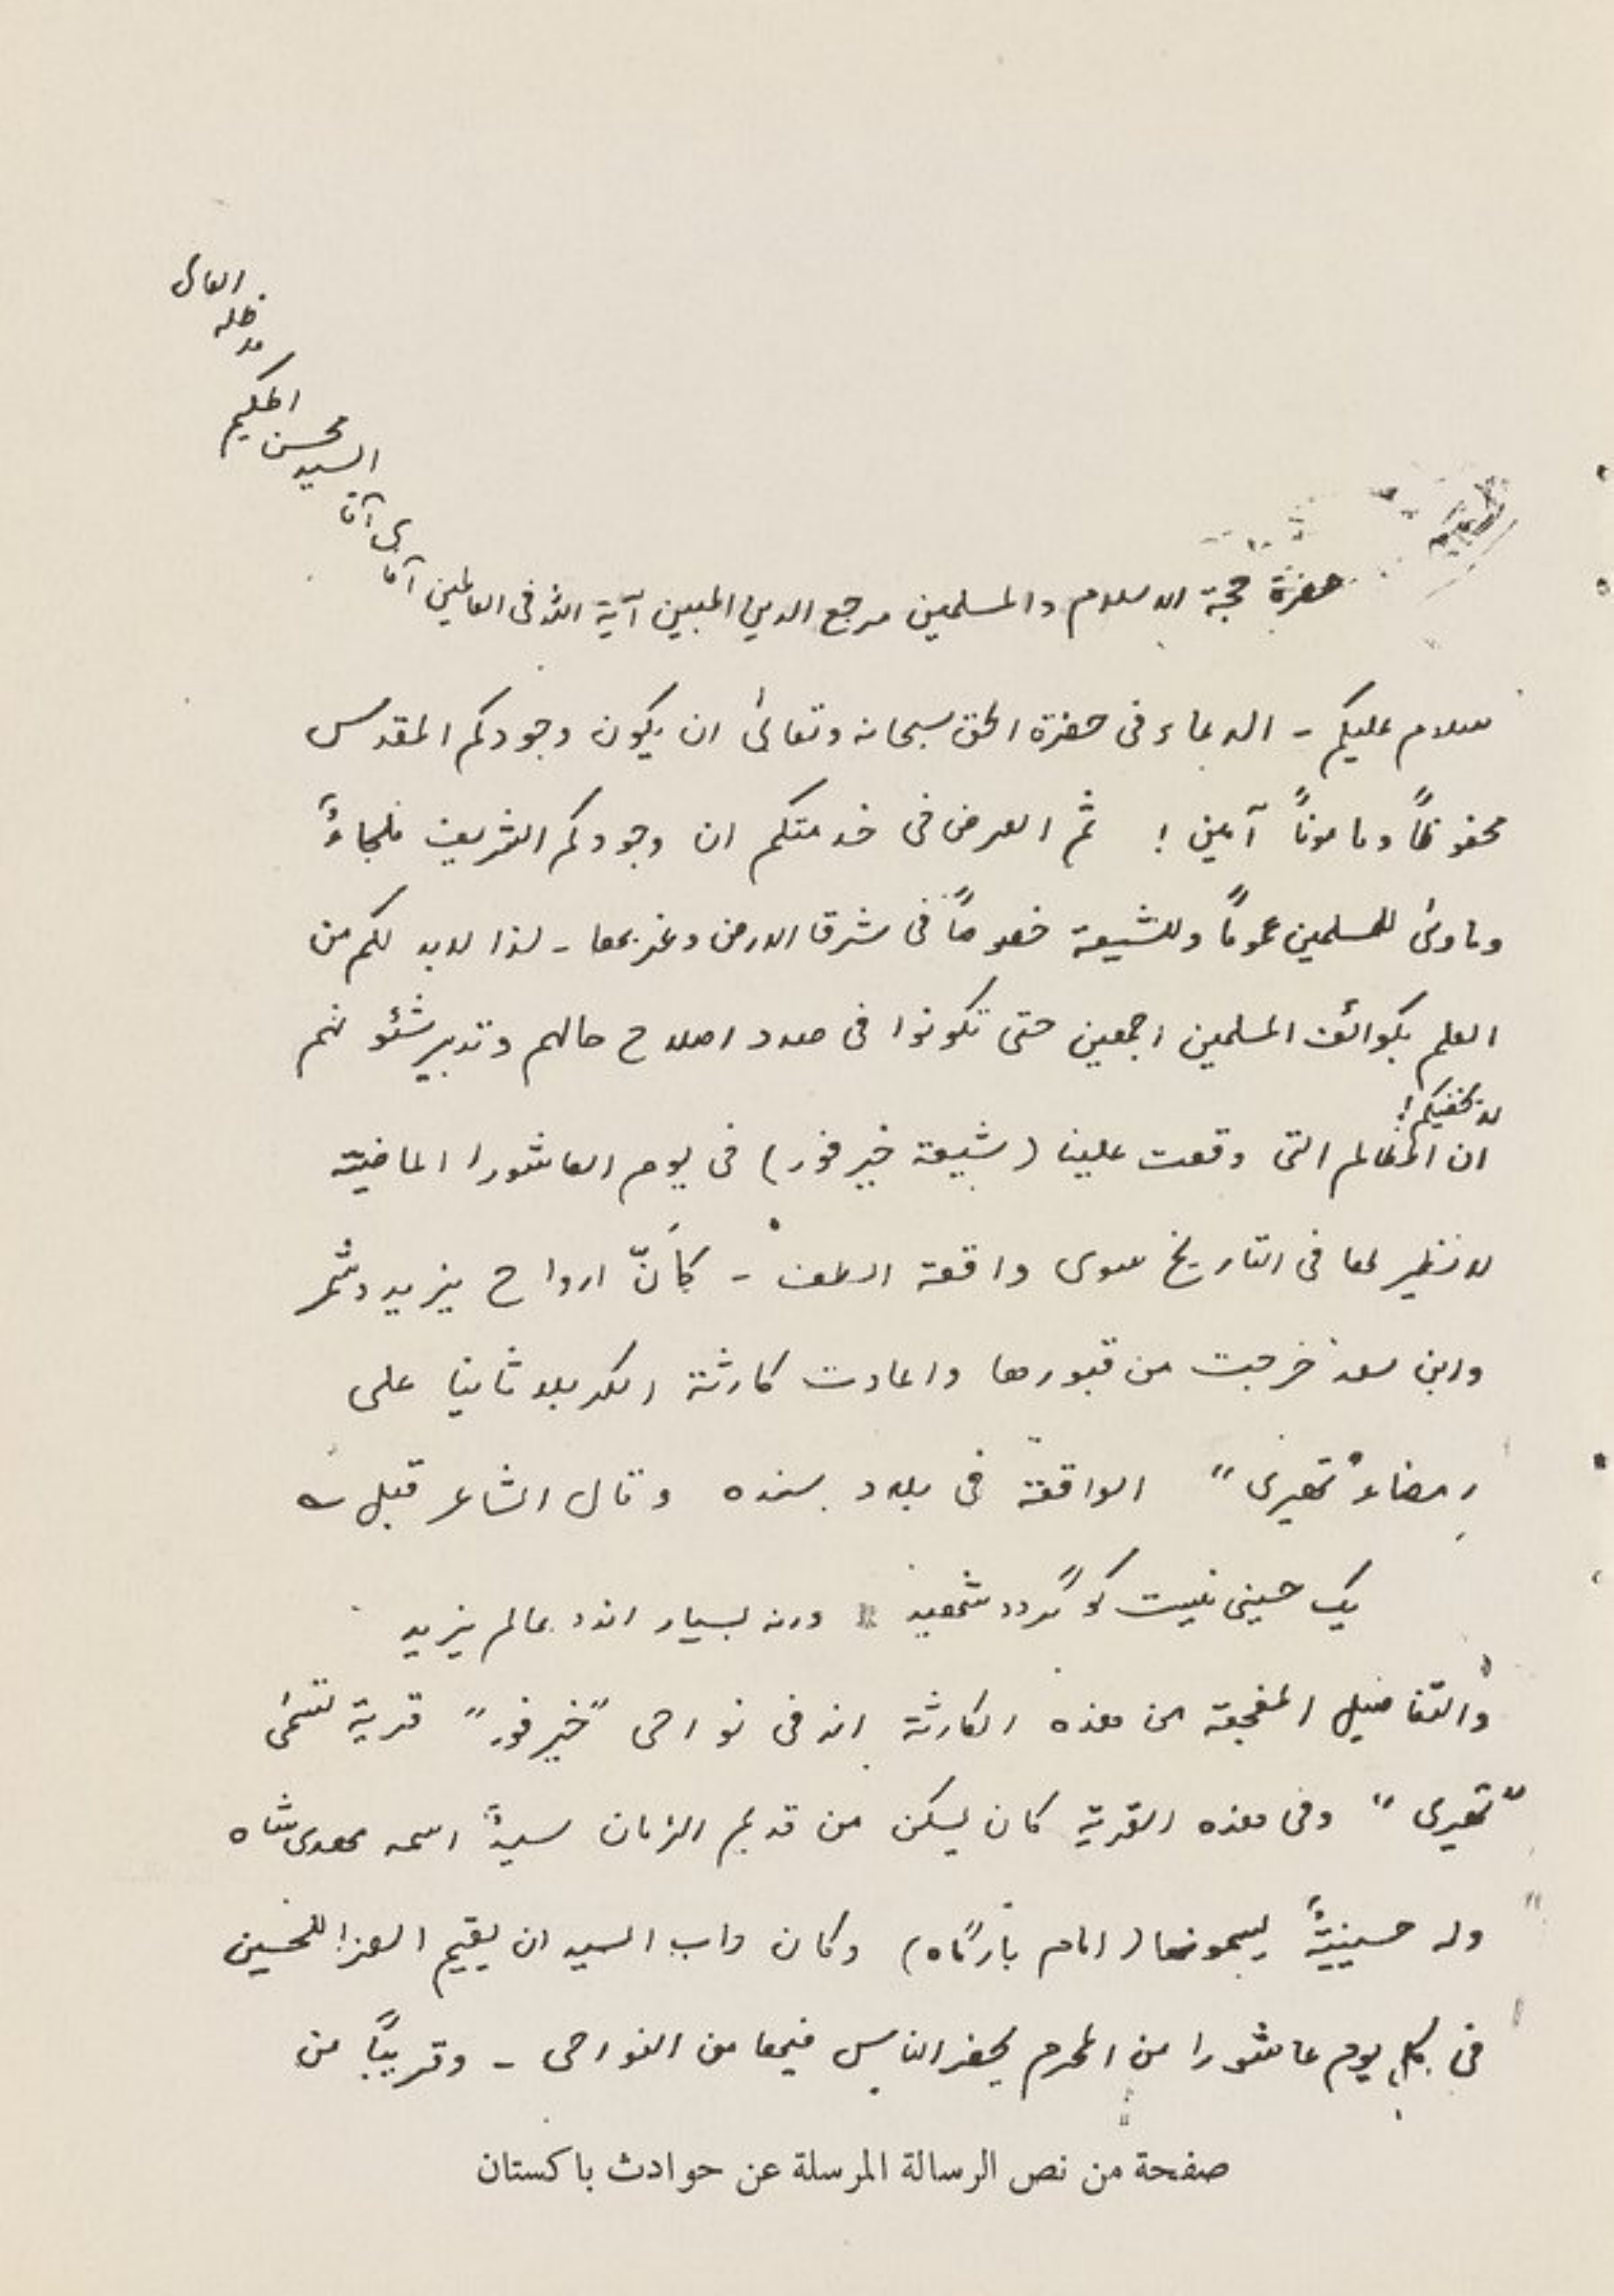 حضرة حجة الاسلام والمسلمين مرجع الدين المبين آية الله فى العالمين آقاى آقا السيد محسن الحكيم مد ظله العالى
سلام عليكم - الدعاء فى حضرة الحق سبحانه وتعالىٰ ان يكون وجودكم المقدس
محفوظاً وماموناً آمين ! ثم العرض فى خدمتكم ان وجودكم الشريف ملجاءً
وماوىٰ للمسلمين عموماً وللشيعة خصوصاً فى شرق الارض وغربها - لذا لابد لكم من
العلم بكوائف المسلمين اجمعين حتى تكونوا فى صدد اصلاح حالهم وتدبير شئونهم
لا يخفيكم !
ان المظالم التى وقعت علينا (شيعة خيرفور) فى يوم العاشورا الماضية
لا نظير لها فى التاريخ سوى واقعة الطف - كأنّ ارواح يزيد وشمر
وابن سعد خرجت من قبورها واعادت كارثة الكربلا ثانيا على
رمضاء ٹھیری" الواقعة فى بلاد سنده وقال الشاعر قبل
یک حسینی نیست کو گردد شهید ورنہ بسیار اند در عالم یزید
والتفاضيل المفجعة من هذه الكارثة انه فى نواحى "خيرفور" قرية تسمىٰ
"ٹھیری" وفى هذه القرية كان يسكن من قديم الزمان سيدٌ اسمه مهدى شاه
وله حسينيةٌ يسمونها (امام بارگاه) وكان داب السيد ان يقيم العزا للحسين
فى كل يوم عاشورا من المحرم يحضر الناس فيها من النواحى - وقريباً من
صفحة من نص الرسالة المرسلة عن حوادث باكستان